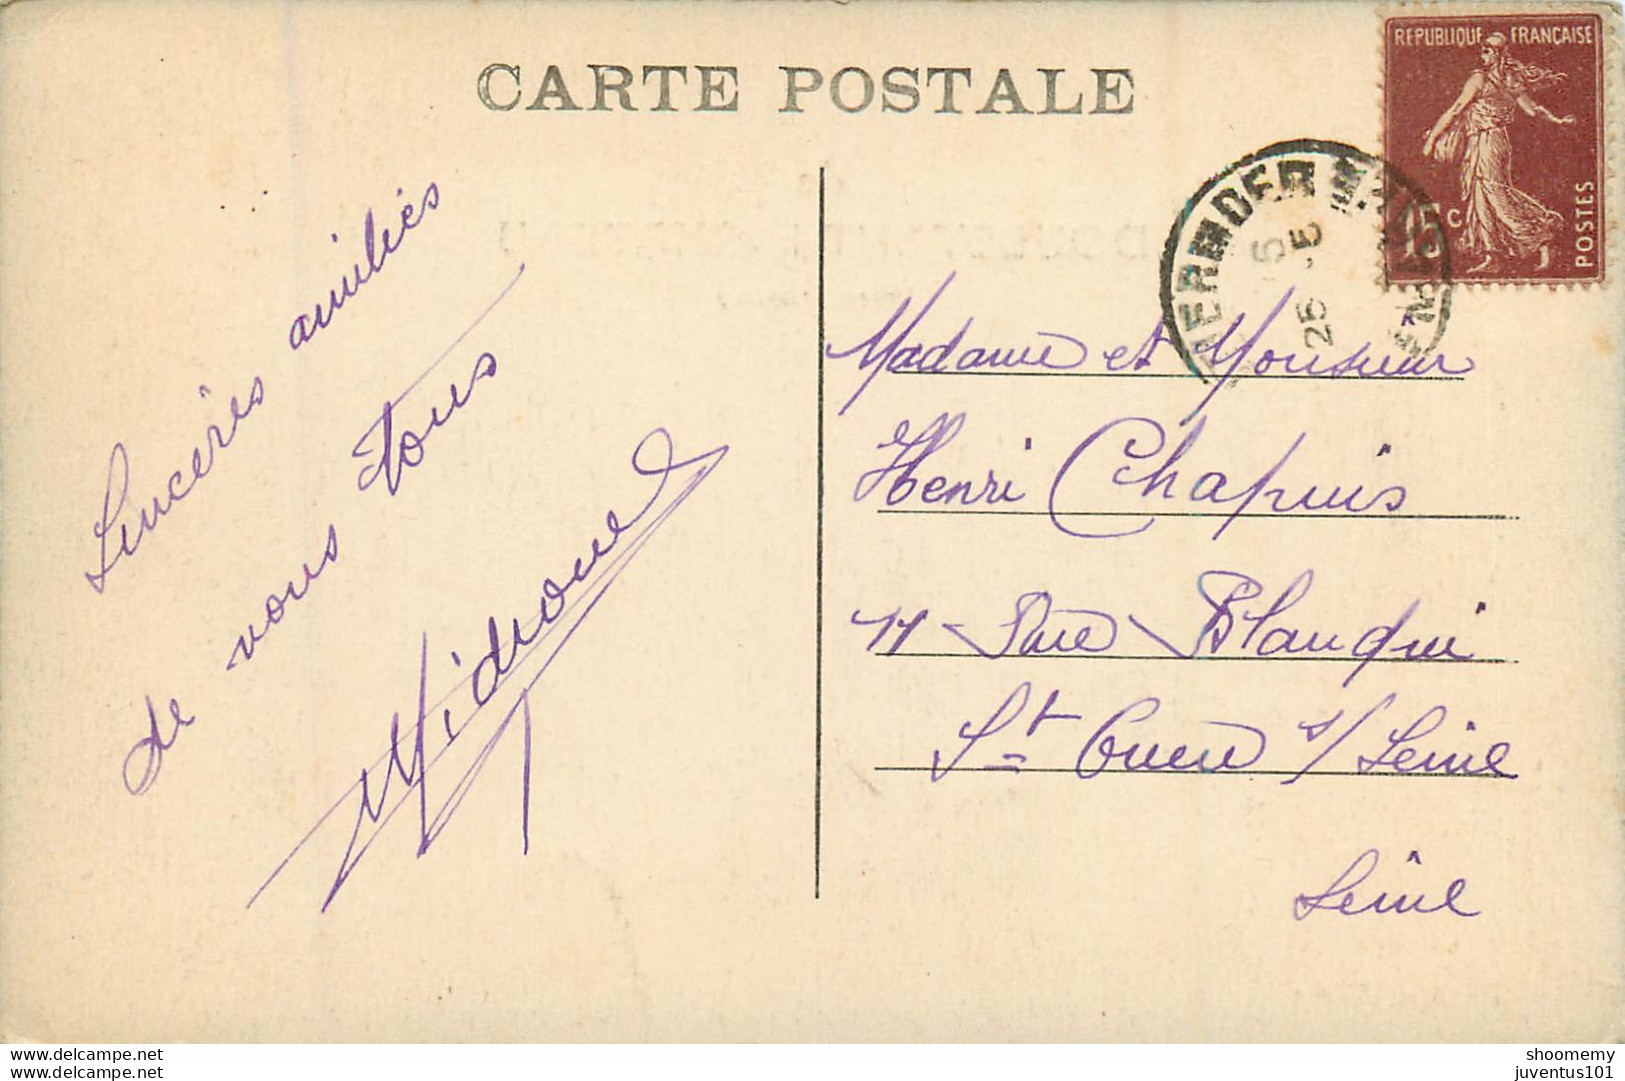 CARTE POSTALE
REPUBLIQUE FRANÇAISE
15 c
POSTES
25
Sincères amitiés
de vous tous
Madame et Monsieur
Henri Chapuis
11 - Rue Blanqui
St Ouen s/ Seine
Seine
www.delcampe.net
www.delcampe.net
shoomemy
juventus101